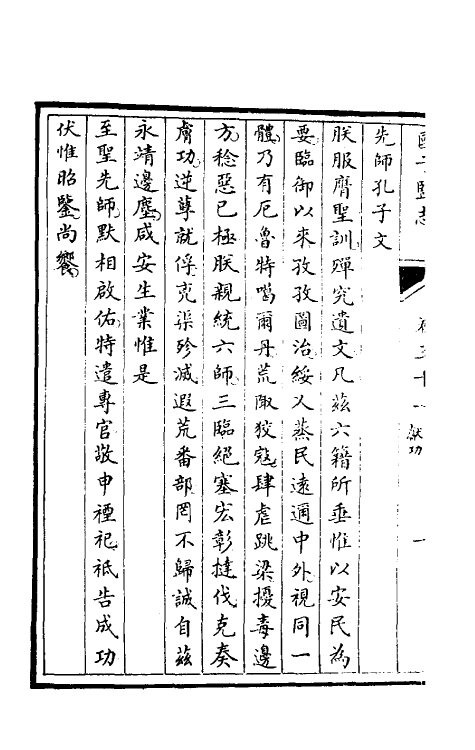 先師孔子文
朕服膺聖訓殫究遺文凡茲六籍所垂惟以安民為
要臨御以來孜孜圖治綏乂蒸民遠邇中外視同一
體乃有厄魯特噶爾丹荒陬狡寇肆虐跳梁擾毒邊
方稔惡已極朕親統六師三臨絕塞宏彰撻伐克奏
膚功逆孽就俘兇渠殄滅遐荒番部罔不歸誠自茲
永靖邊塵咸安生業惟是
至聖先師默相啟佑特遣專官敬申禋祀祗告成功
伏惟昭鑒尚饗